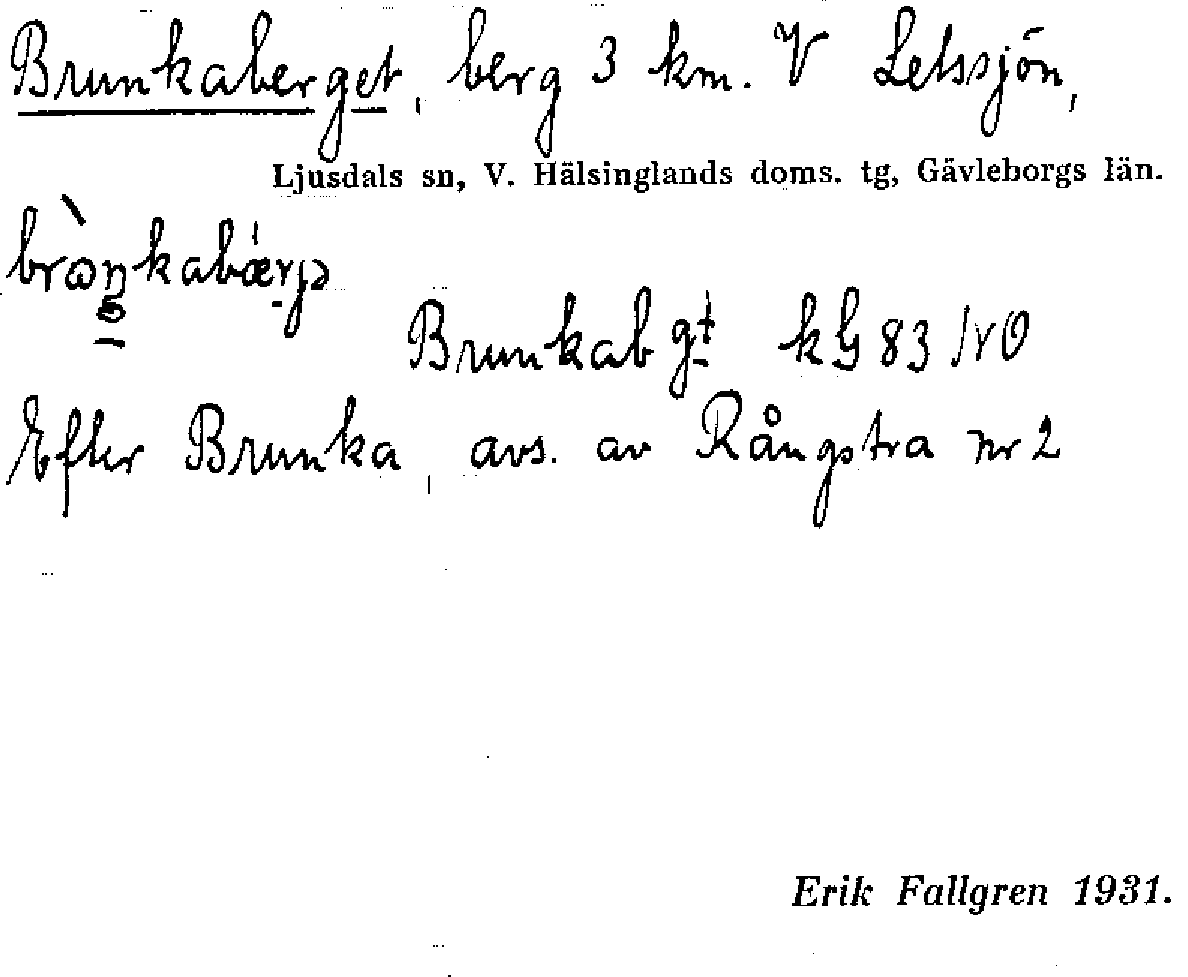 Brunkaberget, berg 3 km. V Letssjön,
Ljusdals sn, V. Hälsinglands doms. tg, Gävleborgs län.
Brunkabgt kG 83 NO
Efter Brunka, avs. av Rångstra nr 2
Erik Fallgren 1931.